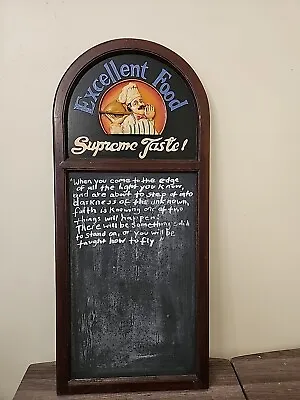 Excellent Food
Supreme Taste!
"When you come to the edge
of all the light you know
and are about to step off into
darkness of the unknown,
faith is knowing one of two
things will happen:
There will be something solid
to stand on, or you will be
taught how to fly"